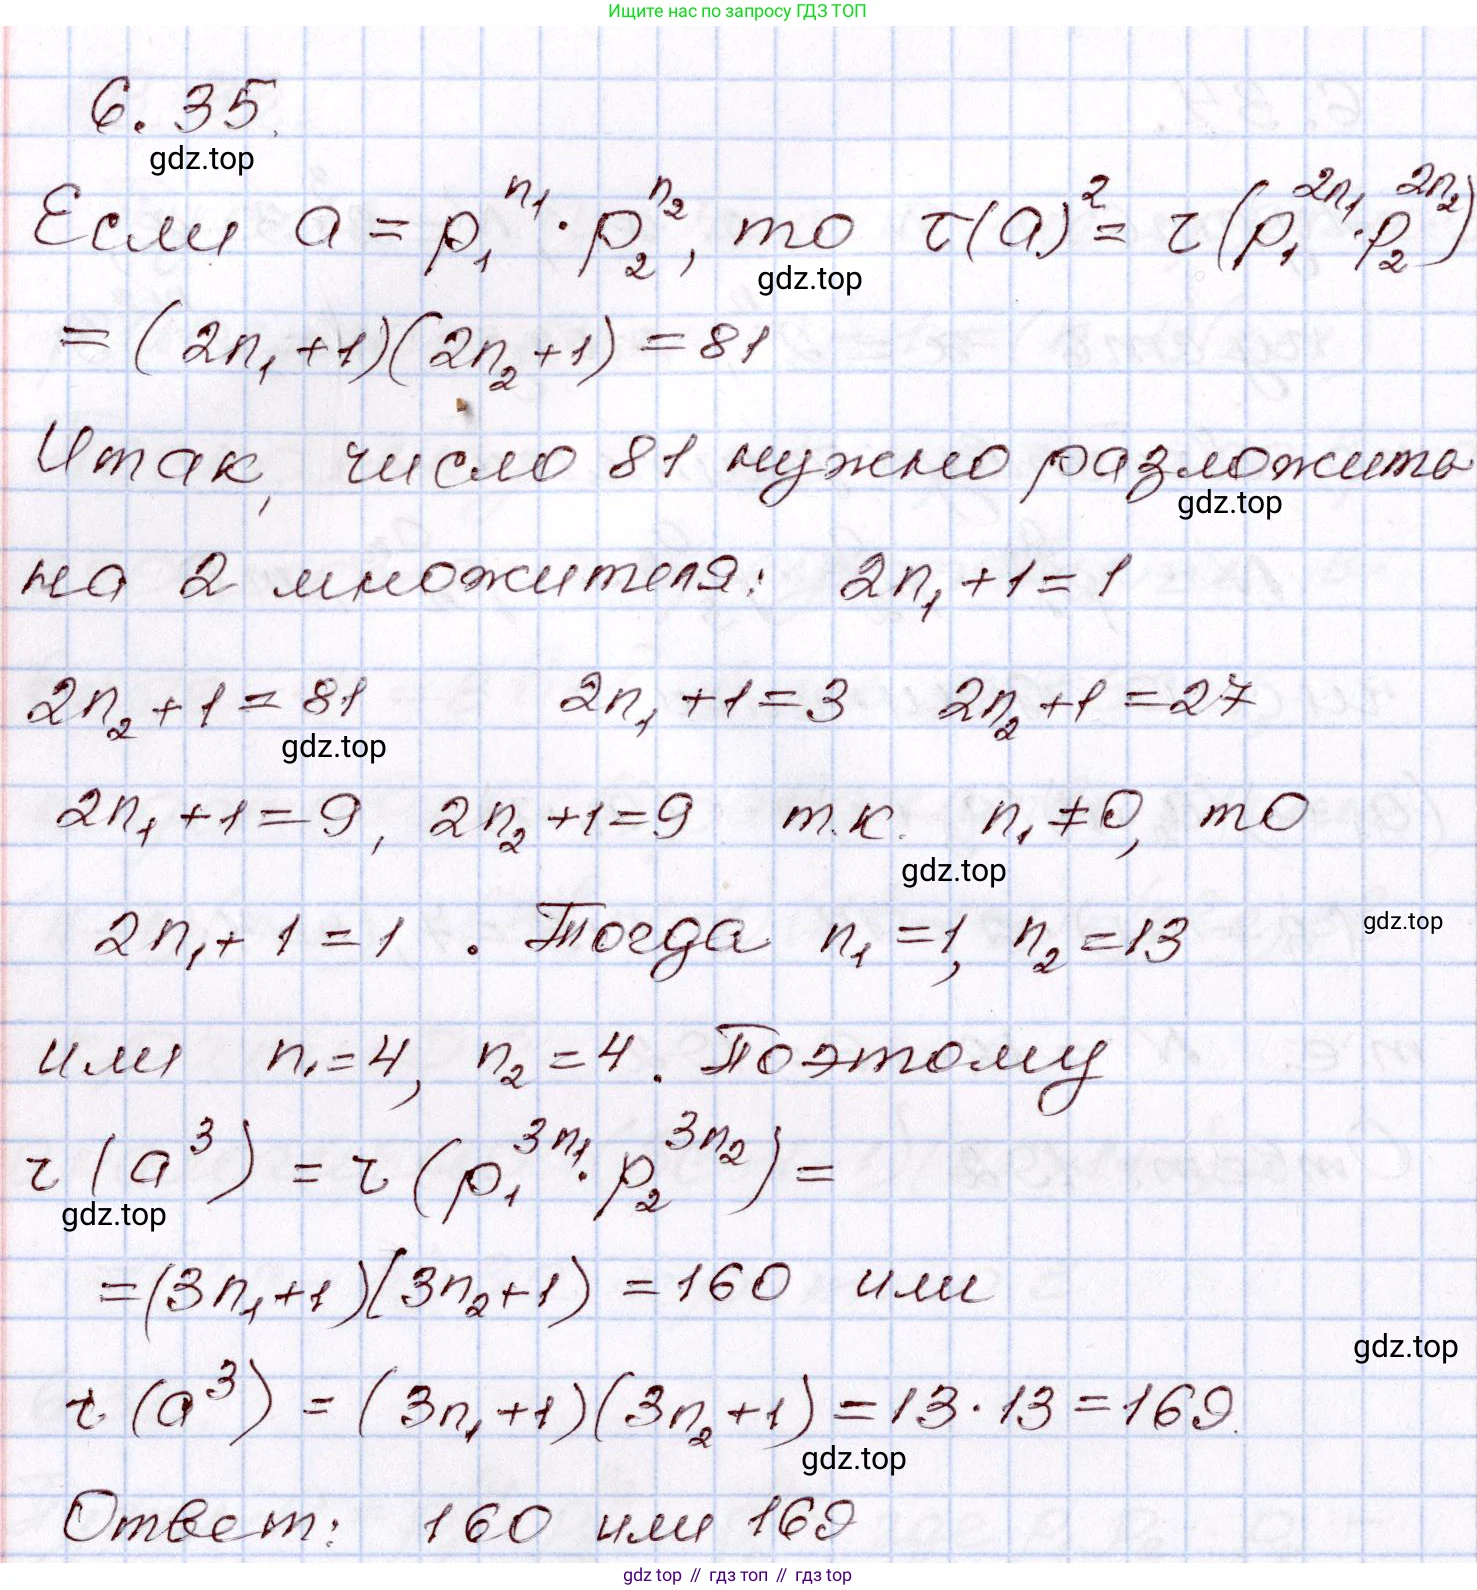 Ищите нас по запросу ГДЗ ТОП
6.35.
gdz.top
Если a = p₁^n₁ · p₂^n₂, то τ(a)² = τ(p₁^2n₁ · p₂^2n₂)
gdz.top
= (2n₁+1)(2n₂+1) = 81
Итак, число 81 нужно разложить
gdz.top
на 2 множителя: 2n₁+1=1
2n₂+1=81 2n₁+1=3 2n₂+1=27
gdz.top
2n₁+1=9, 2n₂+1=9 т.к. n₁≠0, то
gdz.top
2n₁+1=1. Тогда n₁=1, n₂=13
gdz.top
или n₁=4, n₂=4. Поэтому
τ(a³) = τ(p₁^3n₁ · p₂^3n₂) =
gdz.top
=(3n₁+1)(3n₂+1) = 160 или
gdz.top
τ(a³) = (3n₁+1)(3n₂+1) = 13·13 = 169.
gdz.top
Ответ: 160 или 169
gdz top // гдз топ // гдз top